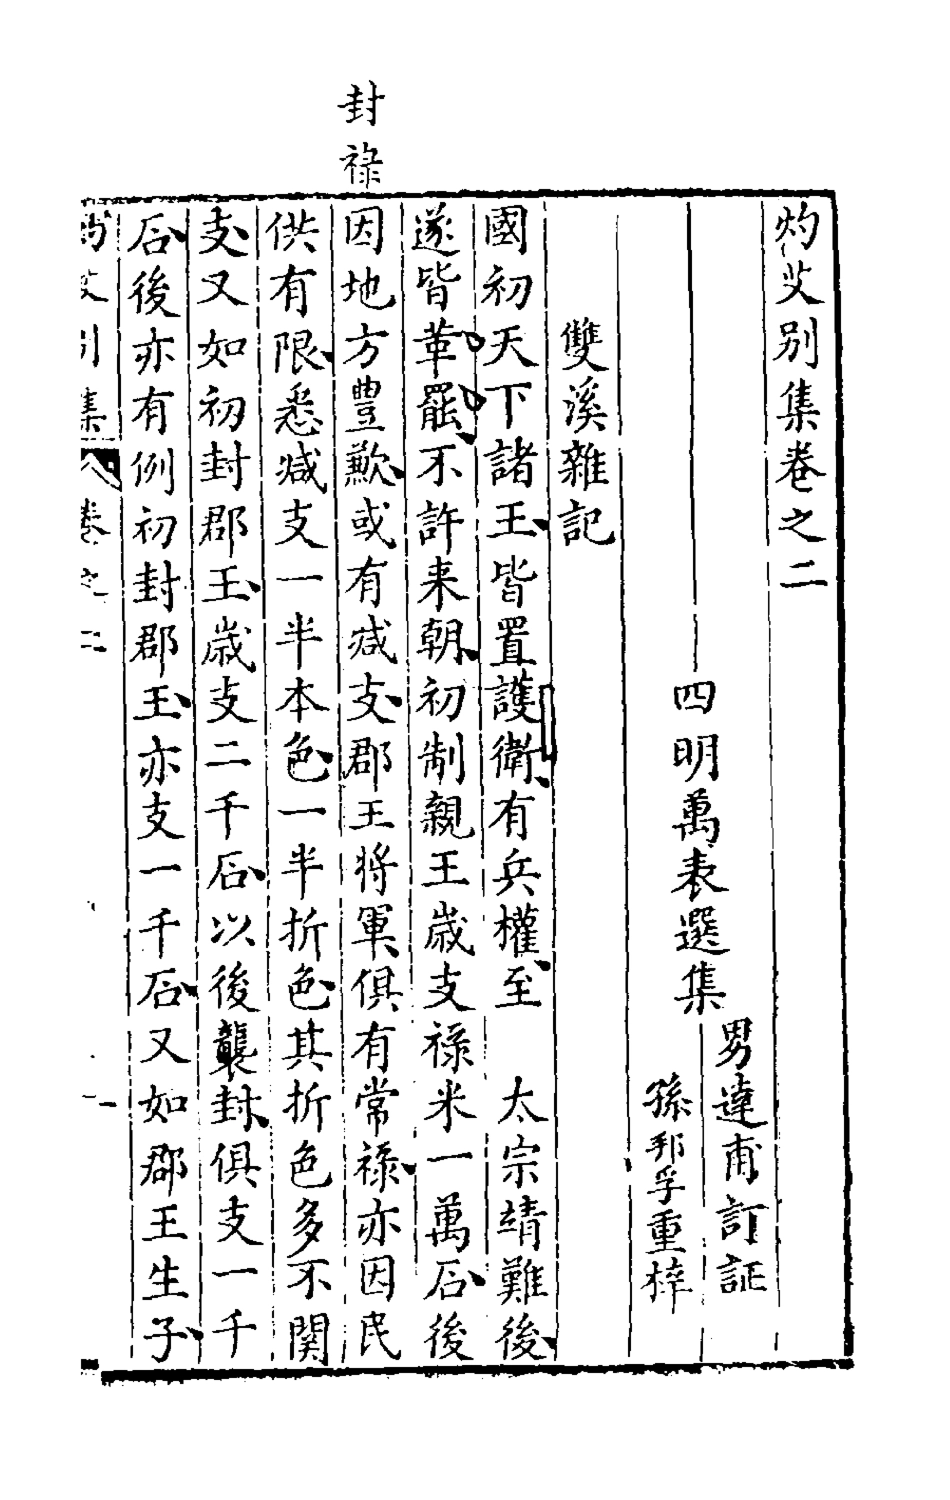 封祿
灼艾别集卷之二
四明萬表選集
男達甫訂証
孫邦孚重梓
雙溪雜記
國初天下諸王皆置護衛有兵權至　太宗靖難後
遂皆革罷不許来朝初制親王歳支祿米一萬石後
因地方豊歉或有减支郡王将軍俱有常祿亦因民
供有限悉减支一半本色一半折色其折色多不関
支又如初封郡王歳支二千石以後襲封俱支一千
石後亦有例初封郡王亦支一千石又如郡王生子
灼艾別集
卷之二
一